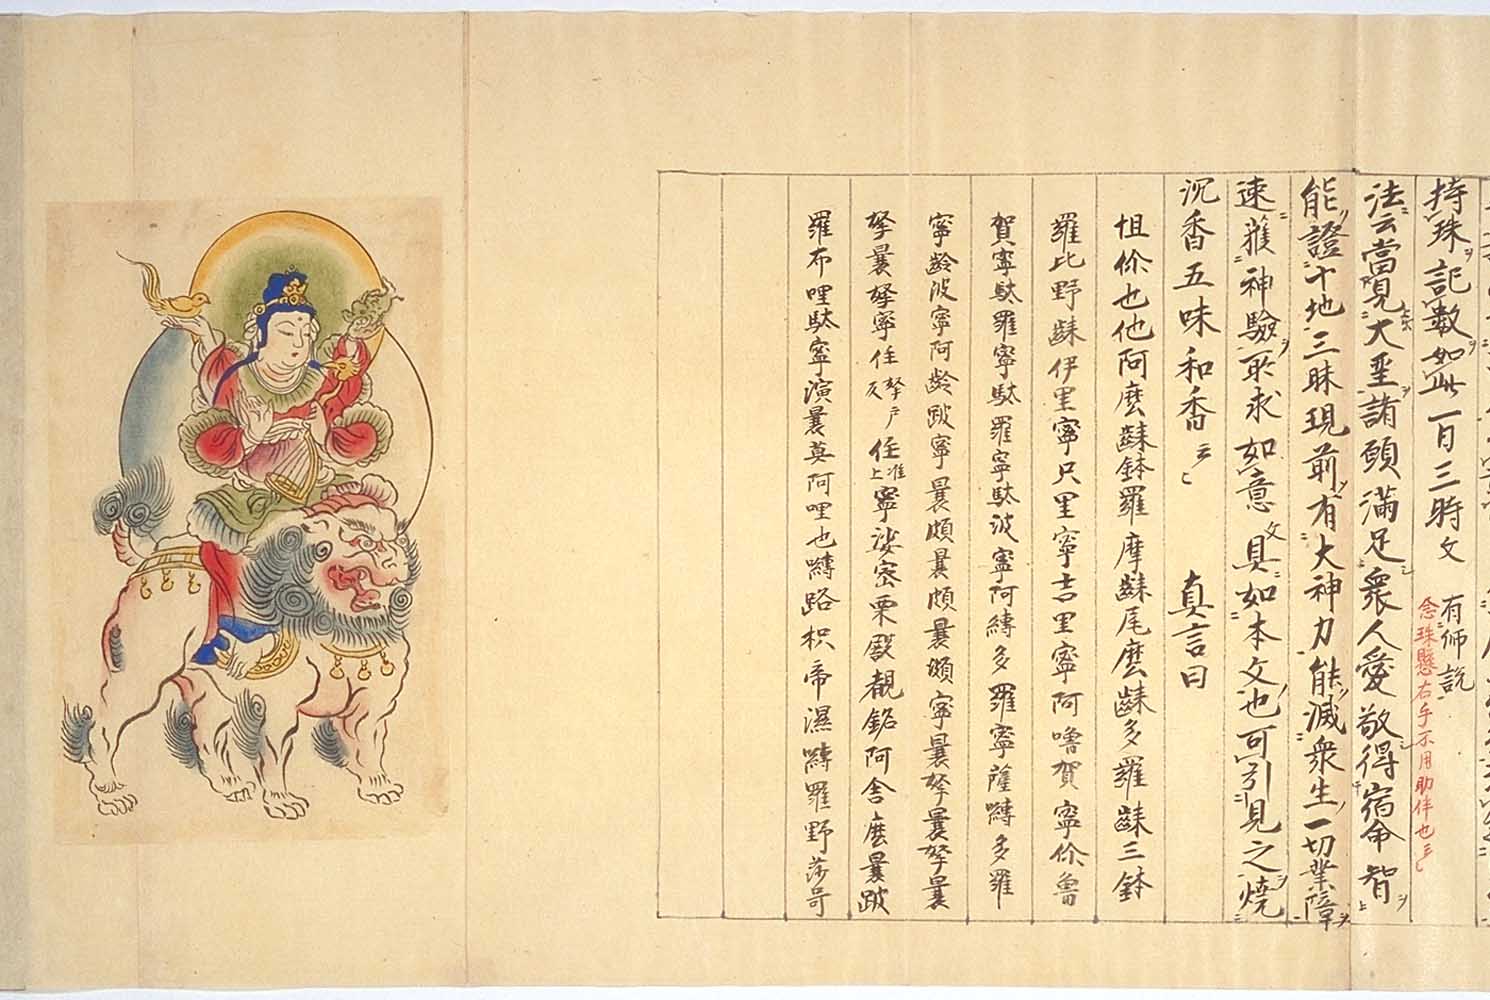 持珠記數如此一日三時文
有師説
念珠懸右手不用助伴也云々
法云當見大聖諸願滿足衆人愛敬得宿命智
能證十地三昧現前有大神力能滅衆生一切業障
速獲神驗所求如意文具如本文也可引見之燒
沉香五味和香云々 真言曰
怛你也他阿麼䫂鉢羅摩䫂尾麼䫂多羅䫂三鉢
羅比野䫂伊里寧只里寧吉里寧阿嚕賀寧你魯
賀寧馱羅寧馱羅寧馱波寧阿縛多羅寧薩嚩多羅
寧齡波寧阿齡跛寧曩頗曩頗曩頗寧曩拏曩拏曩
拏曩拏寧任拏反任准上寧娑密栗殿覩銘阿舎麽曩跛
羅布哩馱寧演曩莫阿哩也嚩路枳帝濕嚩羅野莎呵